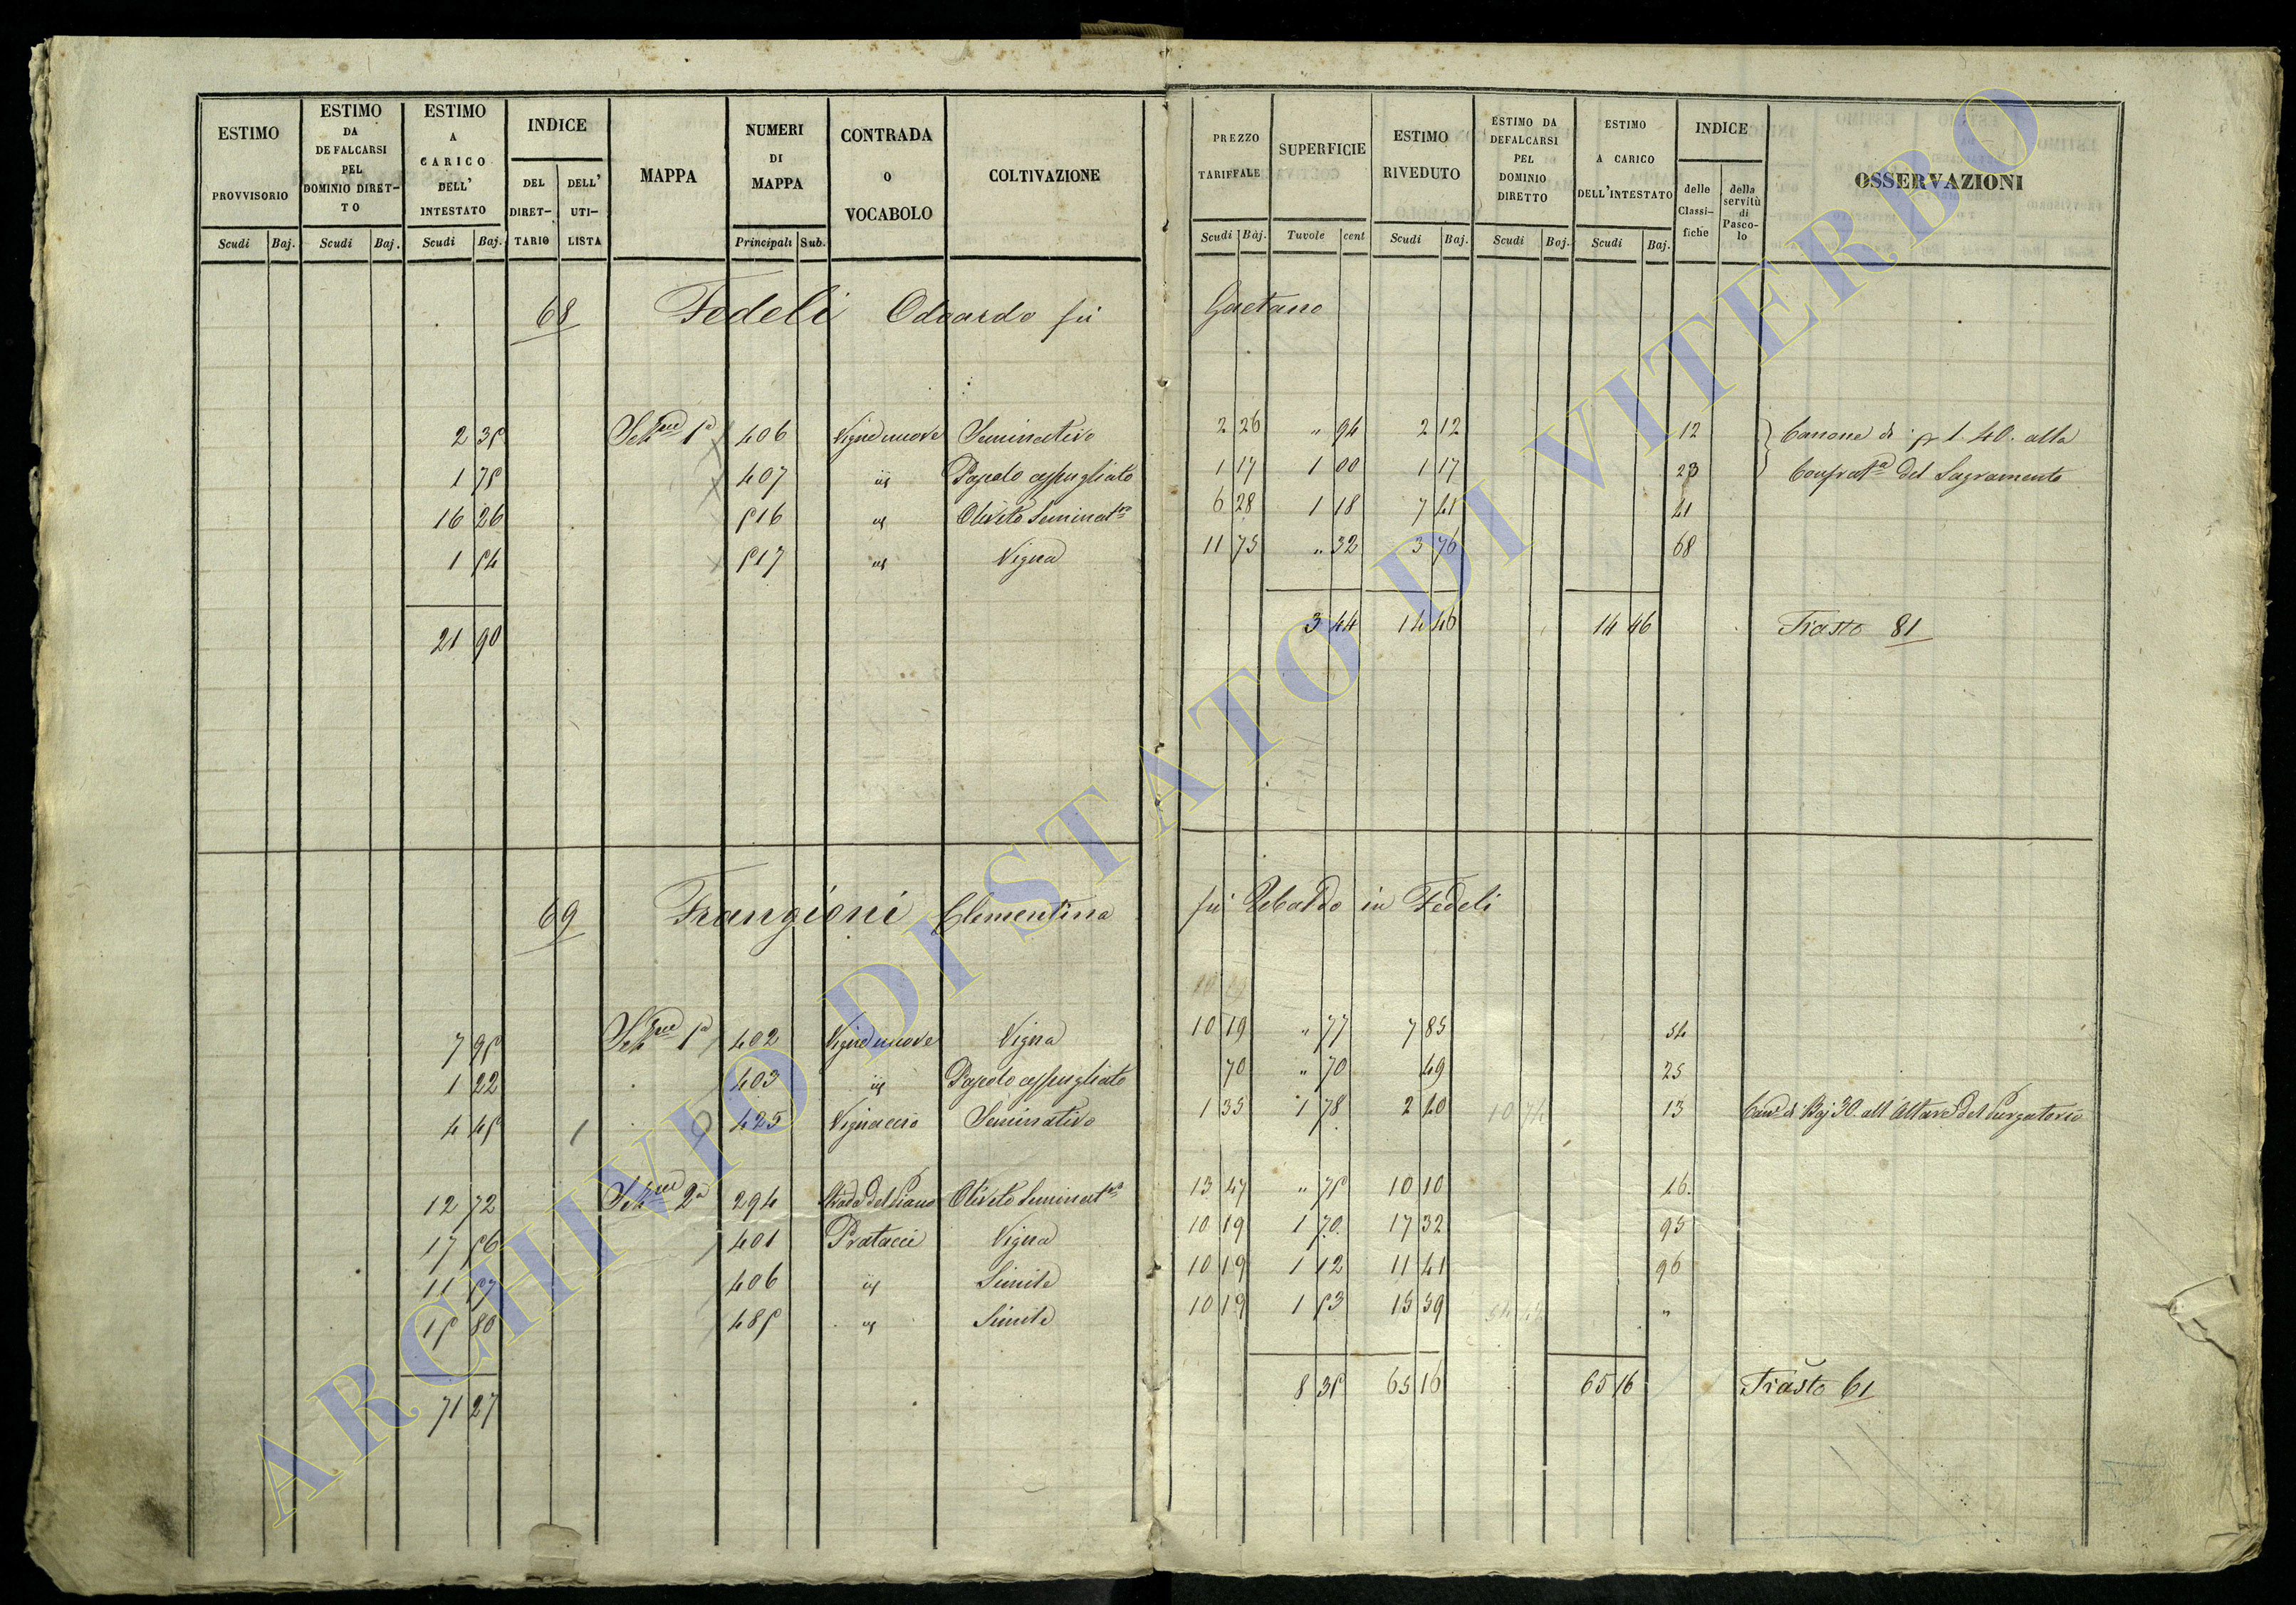 ESTIMO PROVVISORIO Scudi Baj.
ESTIMO DA DEFALCARSI PEL DOMINIO DIRET-TO Scudi Baj.
ESTIMO A CARICO DELL' INTESTATO Scudi Baj.
INDICE DEL DIRET-TARIO DELL' UTI-LISTA
MAPPA
NUMERI DI MAPPA Principali Sub.
CONTRADA O VOCABOLO
COLTIVAZIONE
PREZZO TARIFFALE Scudi Baj.
SUPERFICIE Tavole cent
ESTIMO RIVEDUTO Scudi Baj.
ESTIMO DA DEFALCARSI PEL DOMINIO DIRETTO Scudi Baj.
ESTIMO A CARICO DELL'INTESTATO Scudi Baj.
INDICE delle Classi-fiche della servitù di Pasco-lo
OSSERVAZIONI
68 Fedeli Odoardo fu Gaetano
2 35 Sez.ne 1a 406 Vigne nuove Seminativo 2 26 " 94 2 12 12 Canone di 1.40. alla
1 75 407 id Pascolo cespugliato 1 17 1 00 1 17 23 Confrat.a del Sagramento
16 26 516 id Oliveto Seminat.vo 6 28 1 18 7 41 41
1 54 517 id Vigna 11 75 " 32 3 76 68
21 90 3 44 14 46 14 46 Trasto 81
69 Frangioni Clementina fu Ubaldo in Fedeli
7 95 Sez.ne 1a 402 Vigne nuove Vigna 10 19 " 77 7 85 54
1 22 403 id Pascolo cespugliato 70 " 70 49 25
4 45 1 425 Vignaccio Seminativo 1 35 1 78 2 40 10 74 13 Can.e di Baj 30. all'Altare del Purgatorio
12 72 Sez.ne 2a 294 Strada del Piano Oliveto Seminat.vo 13 47 " 75 10 10 46.
17 56 401 Pratacci Vigna 10 19 1 70 17 32 95
11 57 406 id Simile 10 19 1 12 11 41 96
15 80 485 id Simile 10 19 1 53 15 59 "
71 27 8 35 65 16 65 16 Trasto 61
ARCHIVIO DI STATO DI VITERBO